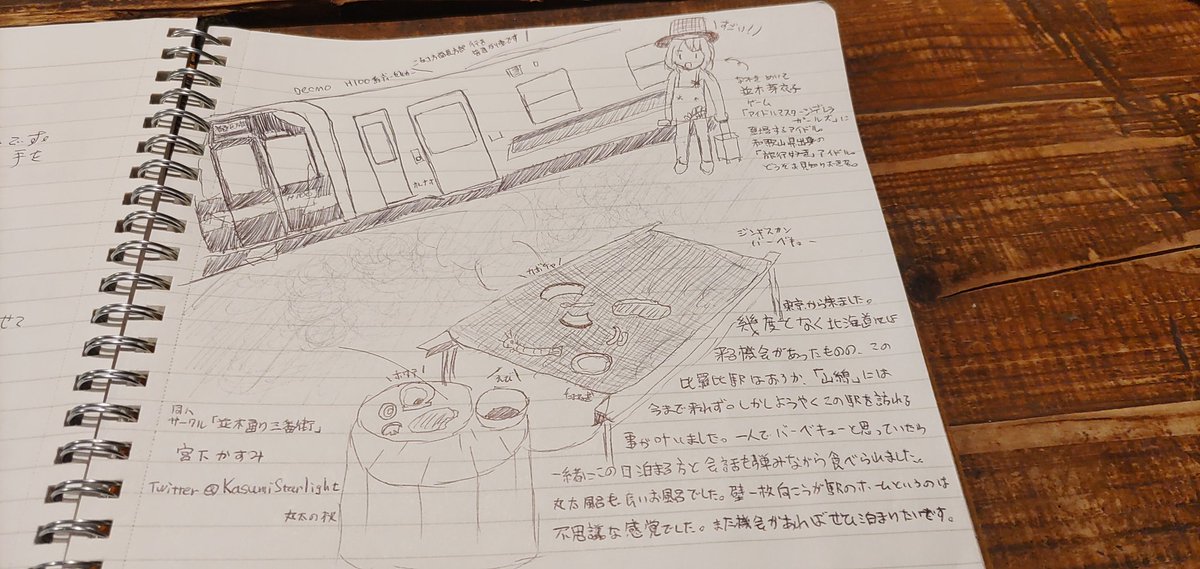 こずゑ
手を
せて
DECMO H100形
すごい!
なみき めいこ
並木芽衣子
ゲーム
「アイドルマスターシンデレラ
ガールズ」に
登場するアイドル。
和歌山県出身の
「旅行好き」アイドル。
どうぞお見知りおきを。
ジンギスカン
バーベキュー
カボチャ!
ホタテ!
えび!
東京から来ました。
幾度となく北海道には
来る機会があったものの、この
比羅夫駅はおろか、「山線」には
今まで来れず。しかしようやくこの駅を訪れる
事が叶いました。一人でバーベキューと思っていたら
一緒にこの日泊まる方と会話も弾みながら食べられました。
丸太風呂も良いお風呂でした。壁一枚向こうが駅のホームというのは
不思議な感覚でした。また機会があればぜひ泊まりたいです。
同人
サークル「並木通り三番街」
宮下かすみ
Twitter @KasumiStarlight
丸太の